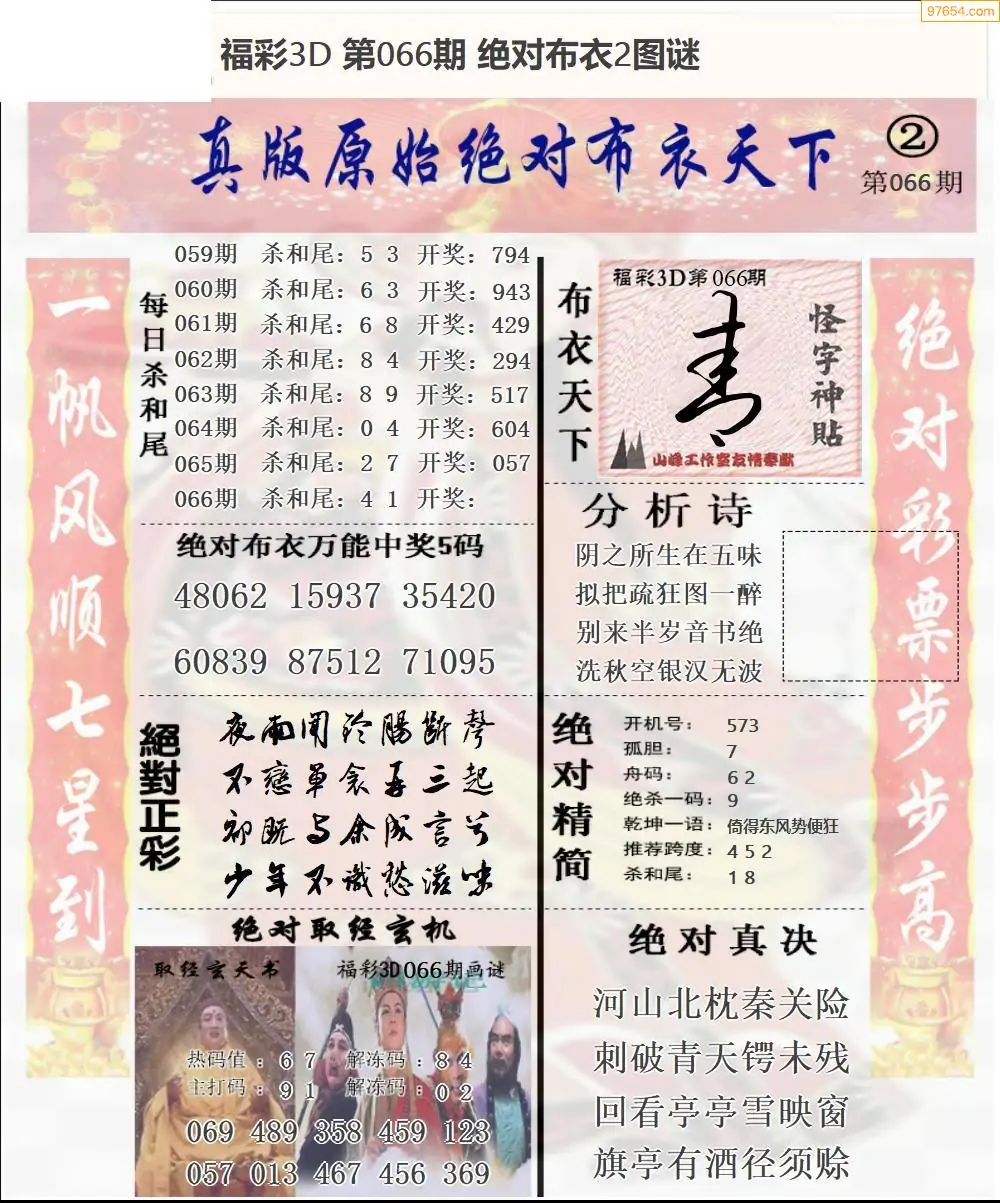 97654.com
福彩3D 第066期 绝对布衣2图谜
真版原始绝对布衣天下
②
第066期
一帆风顺七星到
每日杀和尾
059期 杀和尾：5 3 开奖：794
060期 杀和尾：6 3 开奖：943
061期 杀和尾：6 8 开奖：429
062期 杀和尾：8 4 开奖：294
063期 杀和尾：8 9 开奖：517
064期 杀和尾：0 4 开奖：604
065期 杀和尾：2 7 开奖：057
066期 杀和尾：4 1 开奖：
绝对布衣万能中奖5码
48062 15937 35420
60839 87512 71095
絕對正彩
夜雨闻铃肠断聲
不戀單衾再三起
祁既与余成言兮
少年不識愁滋味
绝对取经玄机
取经玄天书
福彩3D066期画谜
热码值：6 7 解冻码：8 4
主打码：9 1 解冻码：0 2
069 489 358 459 123
057 013 467 456 369
布衣天下
福彩3D第066期
怪字神貼
山峰工作室友情奉献
分析诗
阴之所生在五味
拟把疏狂图一醉
别来半岁音书绝
洗秋空银汉无波
绝对精简
开机号：573
孤胆：7
舟码：6 2
绝杀一码：9
乾坤一语：倚得东风势便狂
推荐跨度：4 5 2
杀和尾：1 8
绝对真决
河山北枕秦关险
刺破青天锷未残
回看亭亭雪映窗
旗亭有酒径须赊
绝对彩票步步高